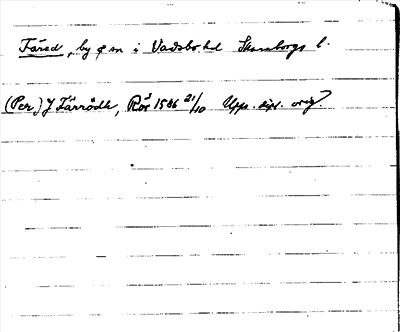 Färed, by o sn i Vadsbo hd Skaraborgs l.
(Per) J Färrödh, Rös 1586 21/10 Upps. dipl. orig